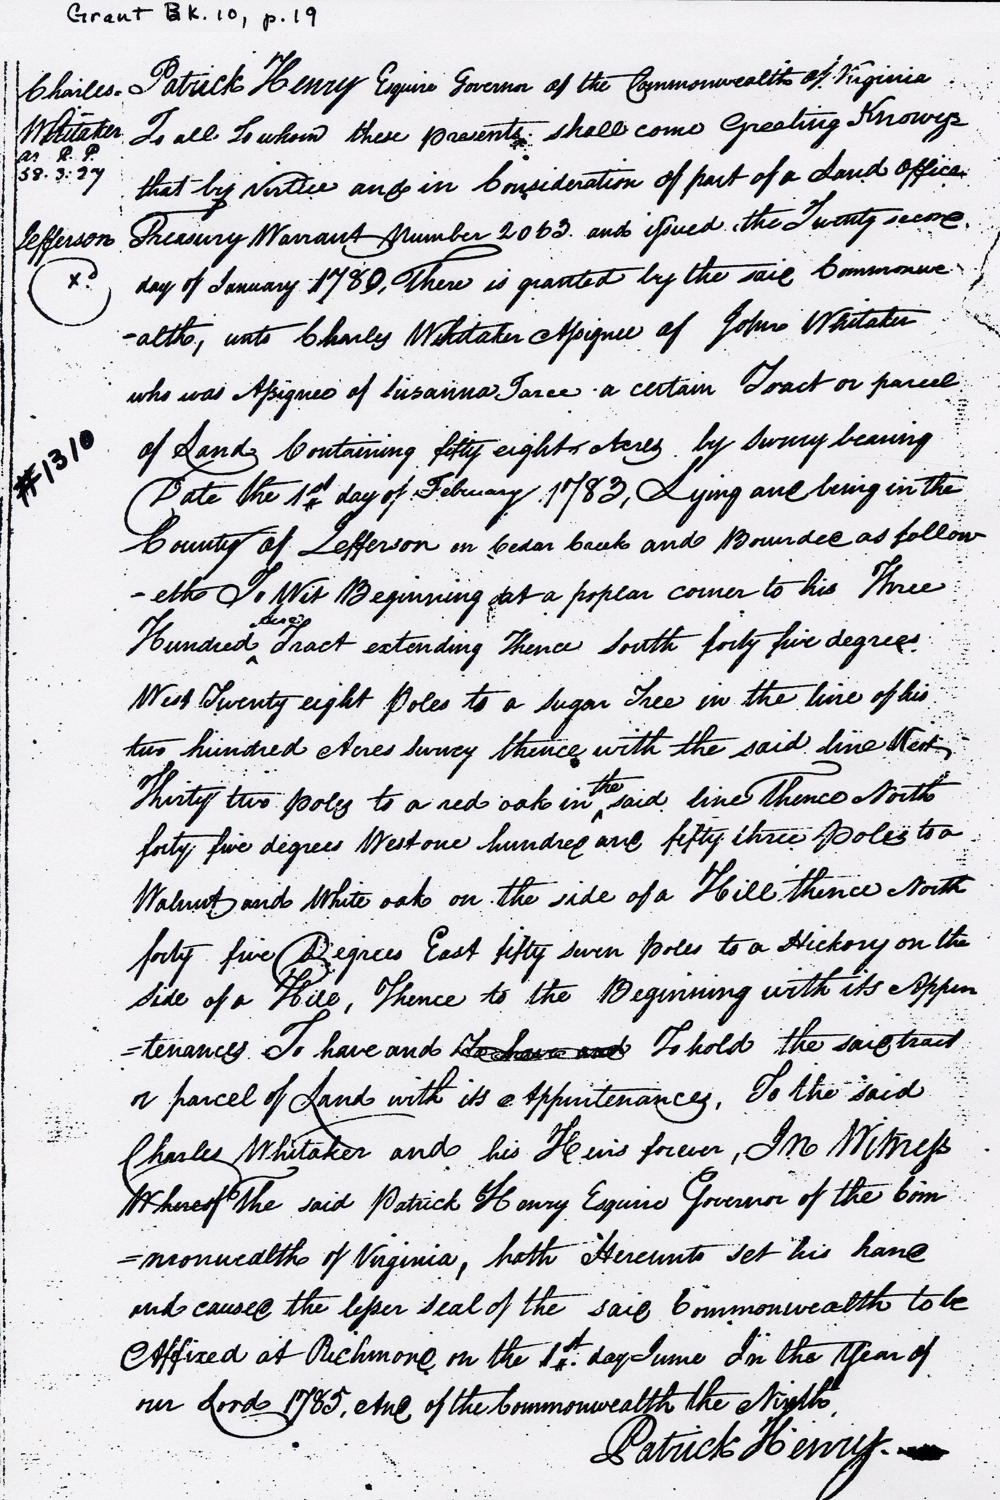 Grant Bk. 10, p. 19
Charles
Whitaker
as. P. P.
58. 3. 27
Jefferson
xd
#1310
Patrick Henry Esquire Governor of the Commonwealth of Virginia
To all To whom these presents shall come Greeting Know ye
that by virtue and in Consideration of part of a Land Office
Treasury Warrant Number 2063 and issued the Twenty second
day of January 1780, There is granted by the said Commonwe
-alth, unto Charles Whitaker Assignee of John Whitaker
who was Assignee of Susanna a certain Tract or parcel
of Land Containing fifty eight Acres by Survey bearing
Date the 1st day of February 1783, Lying and being in the
County of Jefferson on Cedar Creek and Bounded as follow
-eth To Wit Beginning at a poplar corner to his Three
Hundred acre Tract extending Thence South forty five degrees
West Twenty eight Poles to a Sugar Tree in the line of his
two hundred Acres Survey thence with the said line West
Thirty two poles to a red oak in the said line Thence North
forty five degrees West one hundred and fifty three Poles to a
Walnut and White oak on the side of a Hill thence North
forty five Degrees East fifty seven Poles to a Hickory on the
side of a Hill, Thence to the Beginning with its Appur
=tenances To have and To have and To hold the said tract
or parcel of Land with its Appurtenances, To the said
Charles Whitaker and his Heirs forever, In Witness
Whereof The said Patrick Henry Esquire Governor of the Com
=monwealth of Virginia, hath Hereunto set his hand
and caused the lesser Seal of the said Commonwealth to be
Affixed at Richmond on the 1st day June In the Year of
our Lord 1785, And of the Commonwealth the Ninth,
Patrick Henry